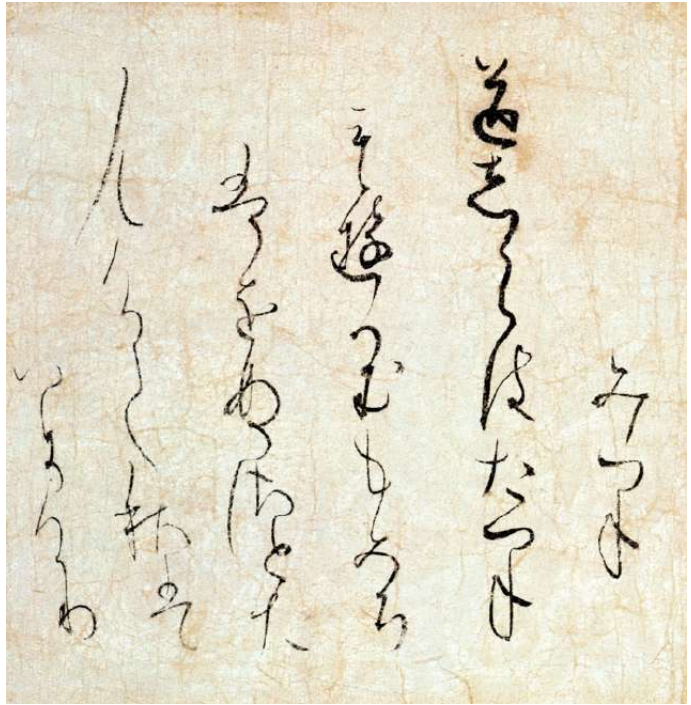 みつね
道しらはたつね
もゆかむもみち
はをぬさとた
むけて秋は
いにけり